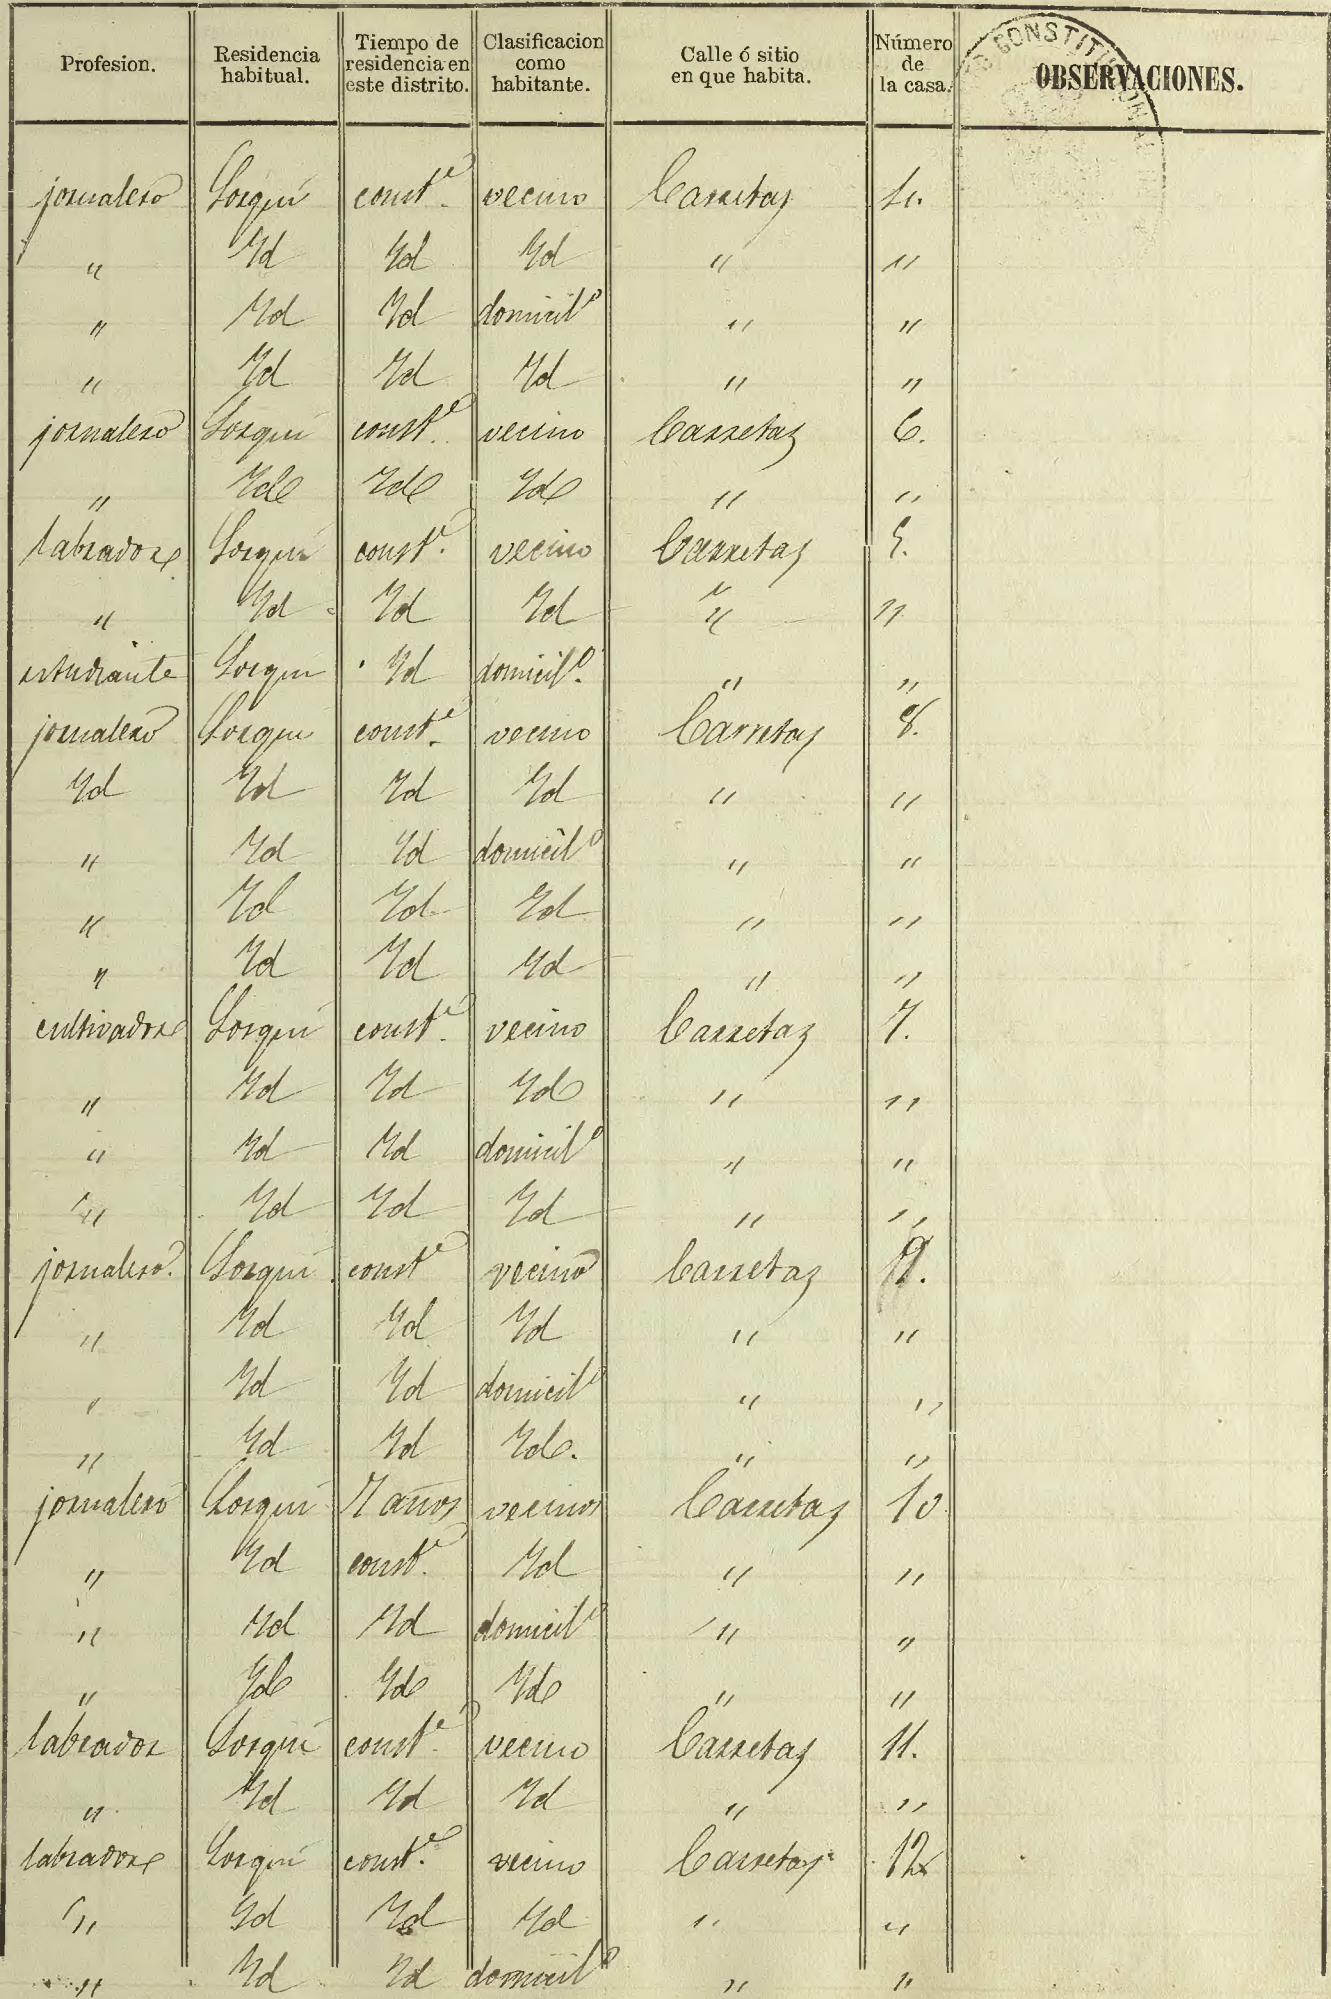 Profesion. Residencia habitual. Tiempo de residencia en este distrito. Clasificacion como habitante. Calle ó sitio en que habita. Número de la casa. OBSERVACIONES.
CONSTITUCIONAL
jornalero Lorquí const.e vecino Carretas
" Yd Yd Yd " "
" Yd Yd domicil.o " "
" Yd Yd Yd " "
jornalero Lorquí const.e vecino Carretas 6.
" Yd Yd Yd " "
labrador Lorquí const.e vecino Carretas 5.
" Yd Yd Yd " "
estudiante Lorquí Yd domicil.o " "
jornalero Lorquí const.e vecino Carretas 8.
Yd Yd Yd Yd " "
" Yd Yd domicil.o " "
" Yd Yd Yd " "
" Yd Yd Yd " "
cultivador Lorquí const.e vecino Carretas 7.
" Yd Yd Yd " "
" Yd Yd domicil.o " "
" Yd Yd Yd " "
jornalero. Lorquí const.e vecino Carretas 9.
" Yd Yd Yd " "
" Yd Yd domicil.o " "
" Yd Yd Yd. " "
jornalero Lorquí 7 años vecinos Carretas 10
" Yd const.e Yd " "
" Yd Yd domicil.o " "
" Yd Yd Yd " "
labrador Lorquí const.e vecino Carretas 11.
" Yd Yd Yd " "
labrador Lorquí const.e vecino Carretas 12
" Yd Yd Yd " "
" Yd Yd domicil.o " "